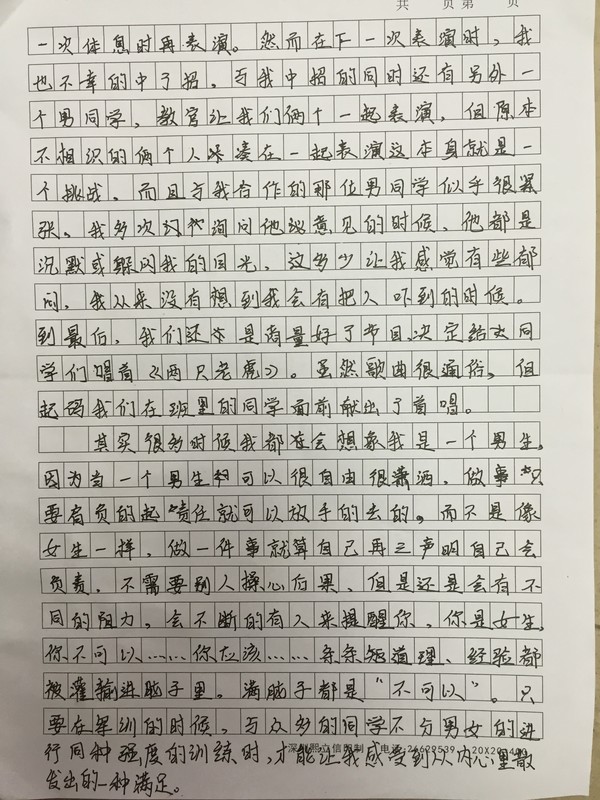 共 页 第 页
一次休息时再表演。然而在下一次表演时,我
也不幸的中了招,与我中招的同时还有另外一
个男同学,教官让我们俩个一起表演,但原本
不相识的俩个人凑在一起表演这本身就是一
个挑战,而且与我合作的那位男同学似乎很紧
张。我多次询问他意见的时候,他都是
沉默或躲闪我的目光,这多少让我感觉有些郁
闷,我从来没有想到我会有把人吓到的时候。
到最后,我们还是商量好了节目,决定给同
学们唱首《两只老虎》。虽然歌曲很通俗,但
起码我们在班里的同学面前献出了首唱。
其实很多时候我都在会想象我是一个男生,
因为当一个男生可以很自由很潇洒,做事只
要肩负的起责任就可以放手的去的,而不是像
女生一样,做一件事就算自己再三声明自己会
负责,不需要别人操心后果,但是还是会有不
同的阻力,会不断的有人来提醒你,你是女生,
你不可以……你应该……条条知道理、经验都
被灌输进脑子里。满脑子都是“不可以”。只
要在军训的时候,与众多的同学不分男女的进
行同种强度的训练时,才能让我感受到从内心里散
发出的一种满足。